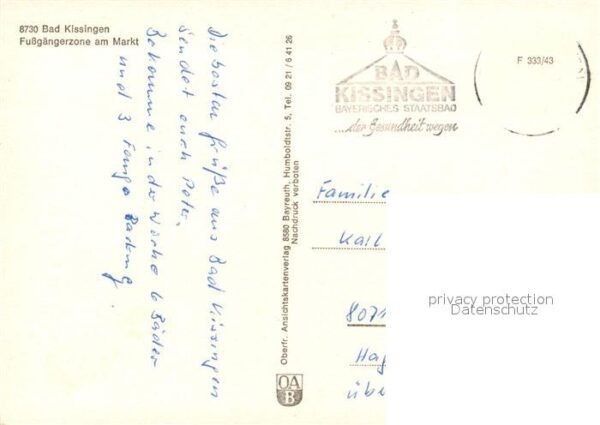 8730 Bad Kissingen
Fußgängerzone am Markt
Die besten Grüße aus Bad Kissingen
sendet euch Peter.
Bekomme in der Woche 6 Bäder
und 3 Fango
Oberfr. Ansichtskartenverlag 8580 Bayreuth, Humboldtstr. 5, Tel. 09 21 / 6 41 26
Nachdruck verboten
OA
B
BAD
KISSINGEN
BAYERISCHES STAATSBAD
...der Gesundheit wegen
F 333/43
Familie
Karl
8071
privacy protection
Datenschutz